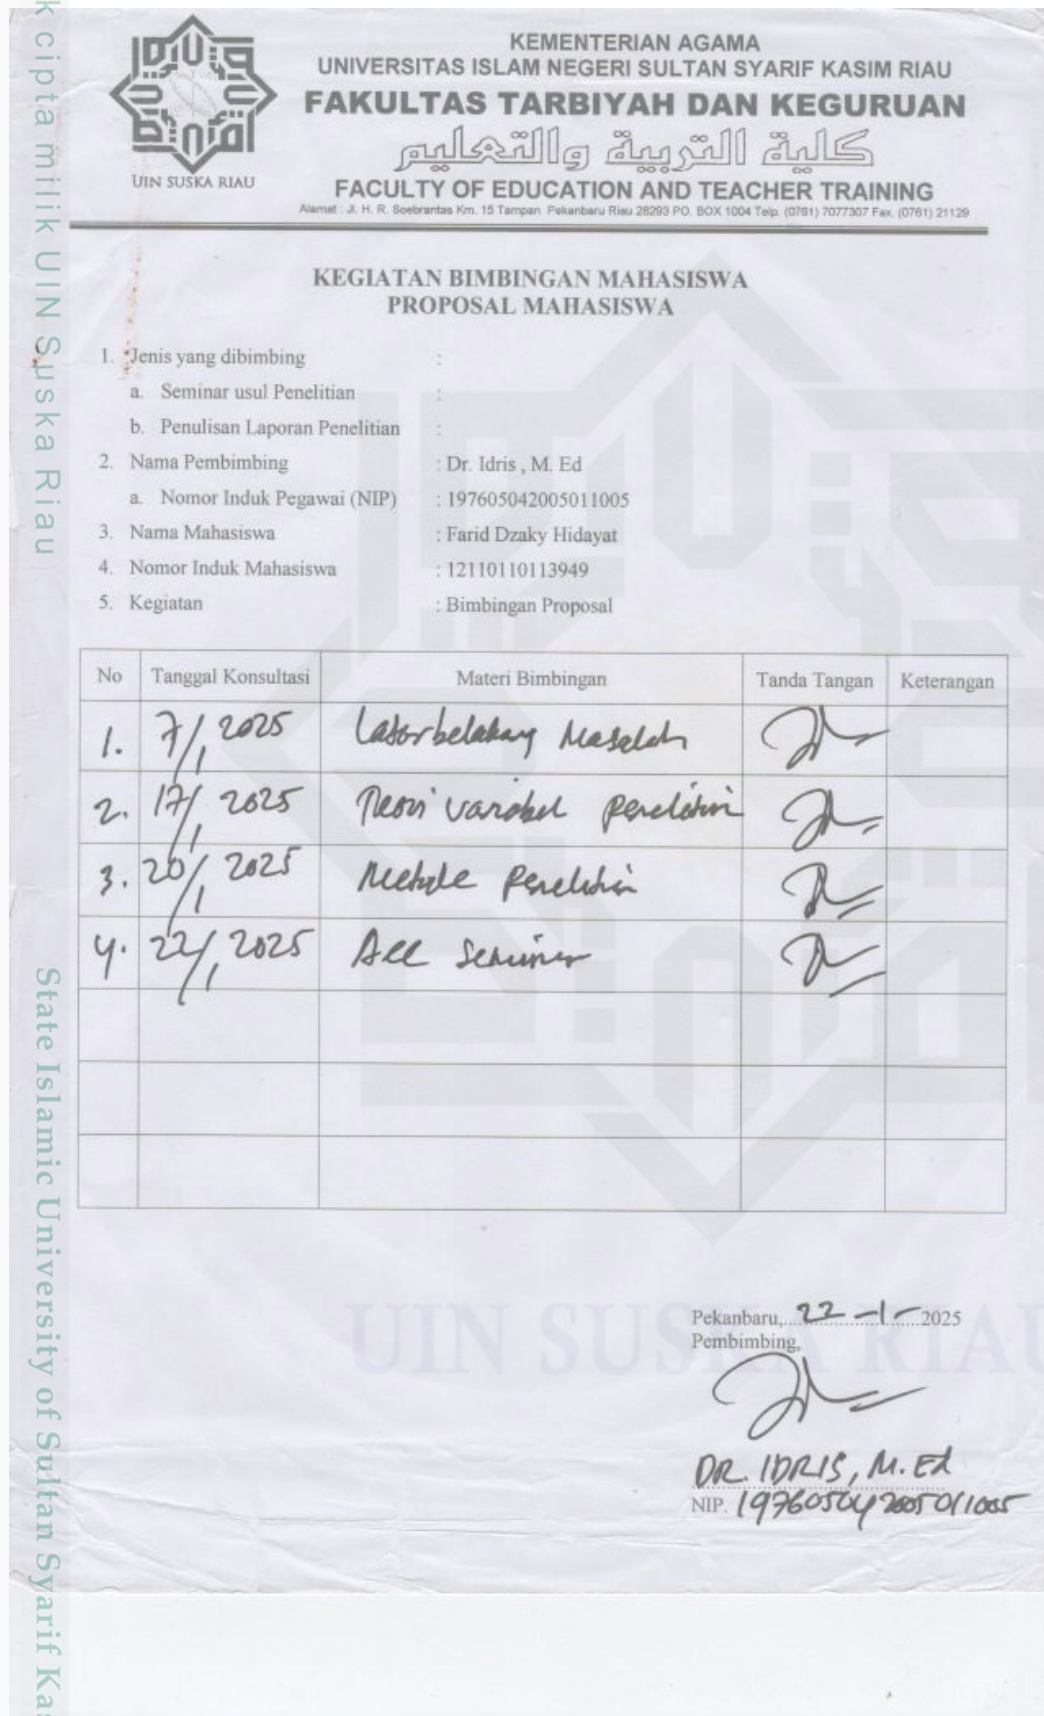 k cipta milik UIN Suska Riau
State Islamic University of Sultan Syarif Kas
UIN SUSKA RIAU
KEMENTERIAN AGAMA
UNIVERSITAS ISLAM NEGERI SULTAN SYARIF KASIM RIAU
FAKULTAS TARBIYAH DAN KEGURUAN
كلية التربية والتعليم
FACULTY OF EDUCATION AND TEACHER TRAINING
Alamat : Jl. H. R. Soebrantas Km. 15 Tampan Pekanbaru Riau 28293 PO. BOX 1004 Telp. (0761) 7077307 Fax. (0761) 21129
KEGIATAN BIMBINGAN MAHASISWA
PROPOSAL MAHASISWA
1. Jenis yang dibimbing :
a. Seminar usul Penelitian :
b. Penulisan Laporan Penelitian :
2. Nama Pembimbing : Dr. Idris , M. Ed
a. Nomor Induk Pegawai (NIP) : 197605042005011005
3. Nama Mahasiswa : Farid Dzaky Hidayat
4. Nomor Induk Mahasiswa : 12110110113949
5. Kegiatan : Bimbingan Proposal
No Tanggal Konsultasi Materi Bimbingan Tanda Tangan Keterangan
1. 7/1 2025 Latarbelakang Masalah
2. 17/1 2025 Teori variabel penelitian
3. 20/1 2025 Metode Penelitian
4. 22/1 2025 Acc Seminar
UIN SUSKA RIAU
Pekanbaru, 22 - 1 - 2025
Pembimbing,
DR. IDRIS, M. Ed
NIP. 197605042005011005